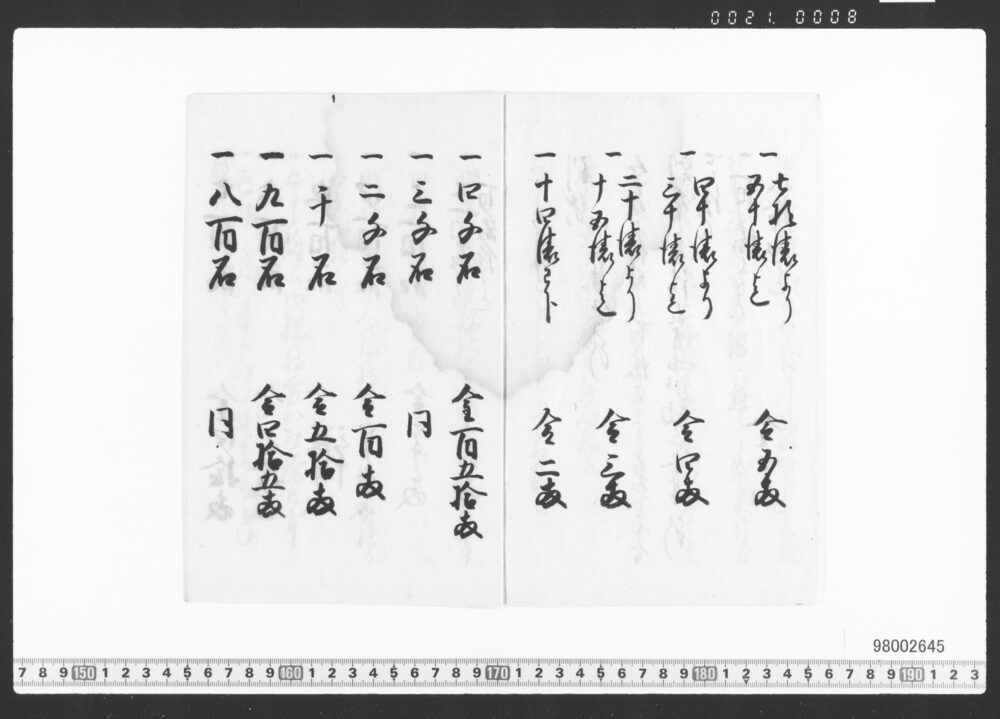 0021. 0008
一 七拾俵より
五十俵迄 金五両
一 四十俵より
三十俵迄 金四両
一 二十俵より
十五俵迄 金三両
一 十四俵以下 金二両
一 四千石 金百五拾両
一 三千石 同
一 二千石 金百両
一 千石 金五拾両
一 九百石 金四拾五両
一 八百石 同
98002645
7 8 9 150 1 2 3 4 5 6 7 8 9 160 1 2 3 4 5 6 7 8 9 170 1 2 3 4 5 6 7 8 9 180 1 2 3 4 5 6 7 8 9 190 1 2 3